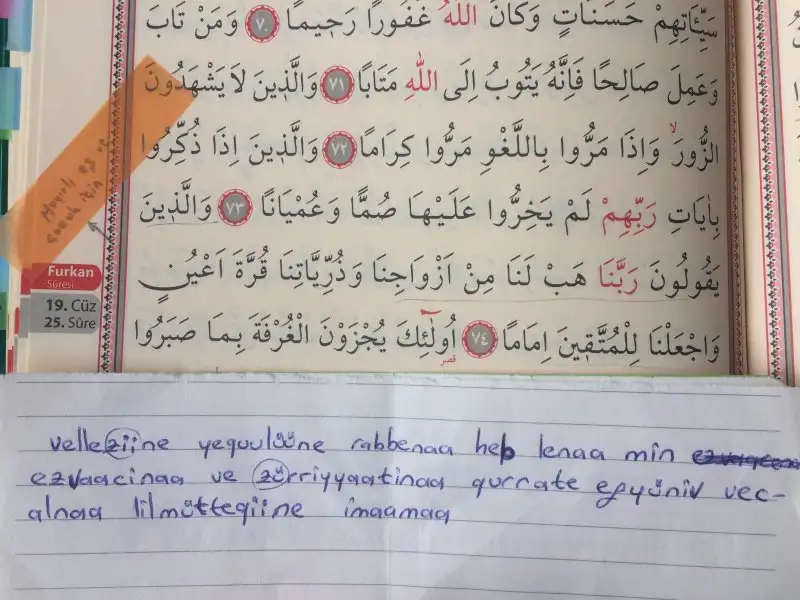 سَيِّـَٔاتِهِمْ حَسَنَاتٍ وَكَانَ اللّٰهُ غَفُورًا رَحِيمًا ﴿٧٠﴾ وَمَنْ تَابَ
وَعَمِلَ صَالِحًا فَاِنَّهُ يَتُوبُ اِلَى اللّٰهِ مَتَابًا ﴿٧١﴾ وَالَّذِينَ لَا يَشْهَدُونَ
الزُّورَ وَاِذَا مَرُّوا بِاللَّغْوِ مَرُّوا كِرَامًا ﴿٧٢﴾ وَالَّذِينَ اِذَا ذُكِّرُوا
بِاٰيَاتِ رَبِّهِمْ لَمْ يَخِرُّوا عَلَيْهَا صُمًّا وَعُمْيَانًا ﴿٧٣﴾ وَالَّذِينَ
يَقُولُونَ رَبَّنَا هَبْ لَنَا مِنْ اَزْوَاجِنَا وَذُرِّيَّاتِنَا قُرَّةَ اَعْيُنٍ
وَاجْعَلْنَا لِلْمُتَّقِينَ اِمَامًا ﴿٧٤﴾ اُولٰٓئِكَ يُجْزَوْنَ الْغُرْفَةَ بِمَا صَبَرُوا
قصر
Hayırlı eş ve
çocuk için
Furkan
Sûresi
19. Cüz
25. Sûre
velleziine yequulüüne rabbenaa heb lenaa min
ezvaacinaa ve zürriyyaatinaa qurrate eğyüniv vec-
alnaa lilmütteqiine imaamaa